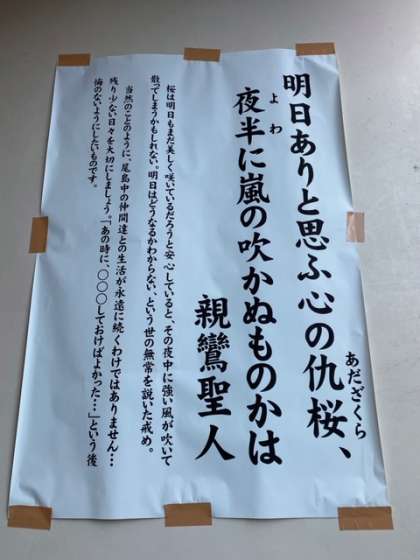 明日ありと思ふ心の仇桜、
あだざくら
夜半に嵐の吹かぬものかは
よわ
親鸞聖人
桜は明日もまだ美しく咲いているだろうと安心していると、その夜中に強い風が吹いて
散ってしまうかもしれない。明日はどうなるかわからない、という世の無常を説いた戒め。
当然のことのように、尾島中の仲間達との生活が永遠に続くわけではありません…
残り少ない日々を大切にしましょう。「あの時に、〇〇〇しておけばよかった…」という後
悔のないようにしたいものです。